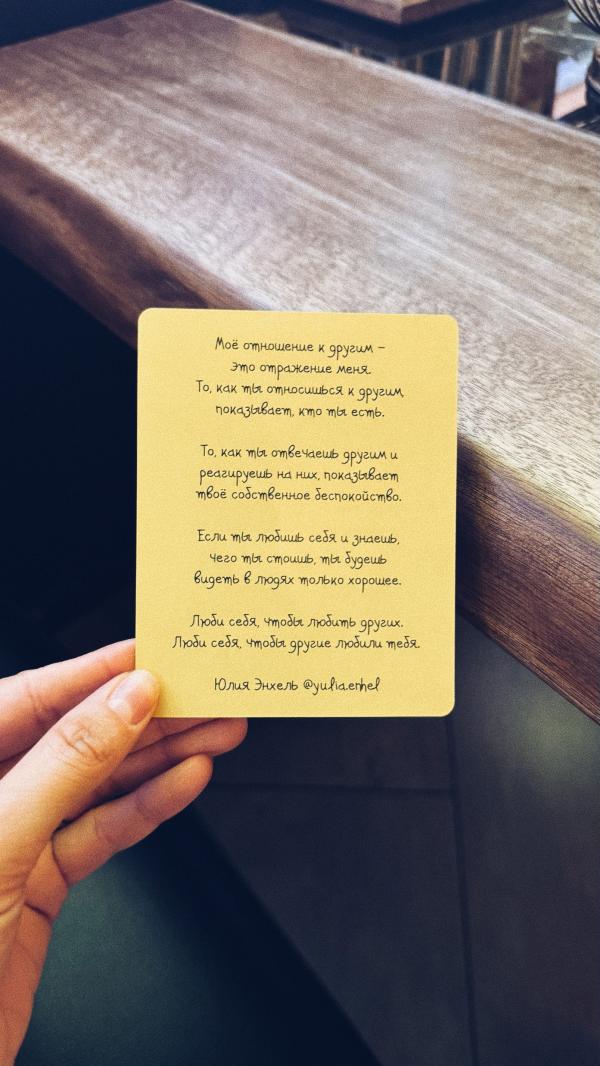 Моё отношение к другим –
это отражение меня.
То, как ты относишься к другим,
показывает, кто ты есть.
То, как ты отвечаешь другим и
реагируешь на них, показывает
твоё собственное беспокойство.
Если ты любишь себя и знаешь,
чего ты стоишь, ты будешь
видеть в людях только хорошее.
Люби себя, чтобы любить других.
Люби себя, чтобы другие любили тебя.
Юлия Энхель @yulia.enhel